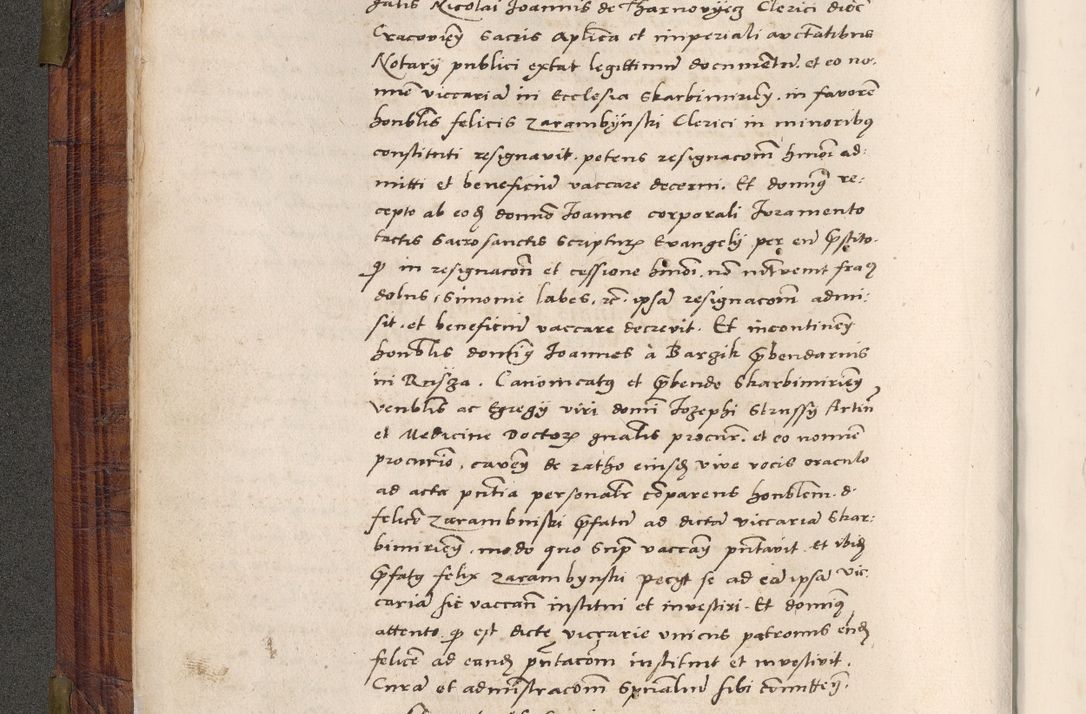 galis Nicolai Joannis de Tharnowyecz Clerici dioc̄
Cracovieñ sacris aplica et imperiali auctatibus
Notarij publici extat legittimū documētū. et eo no:
mīe viccariā in Ecclesia Skarbimirieñ. in favorē
honblis felicis Zarambÿnski Clerici in minoribꝰ
constituti resignavit. petens resignacom̄ hmōi ad:
mitti et beneficiū vaccare decerni. Et domꝰ re:
cepto ab eodē domō Joanne corporali Juramento
tactis sacrosanctis scripturꝵ Evangelij per eū p̄stito.
ꝙ in resignacōn et cessione hmōi. nō inītrvenit fraꝰ
dolus, simonie labes, rc̄. ipsā resignacom̄ admi:
sit. et beneficiū vaccare decrevit. Et incontineñ
honblis domīꝰ Joannes à Barzik p̄bendarius
in Rusza. Canonicatꝰ et p̄bende Skarbimirieñ
venblis ac Egregij viri domi Jozephi Strussÿ Artiū
et Medicine Doctorꝵ gnālis procurꝛ. et eo nomīe
procurio, caveñ de ratho eiusdē vive vocis oraculo
ad acta pn̄tia personalr cōparens honblem. d.
felicē Zarambinski p̄fatū ad dictā viccariā Skar:
bimirieñ. modo quo supr̄ vaccañ pn̄tavit. et ibidē
p̄fatꝰ felix Zarambynski pecyt se ad eā ipsā vic
cariā sic vaccan̄ institui et investiri. Et domīꝰ
attento. ꝙ est dicte viccarie unicus patronus eūdē
felicē ad eandē pn̄tacom̄ instituit et investivit.
Curā et admīstracōm spūaliū sibi cōmitteñ.